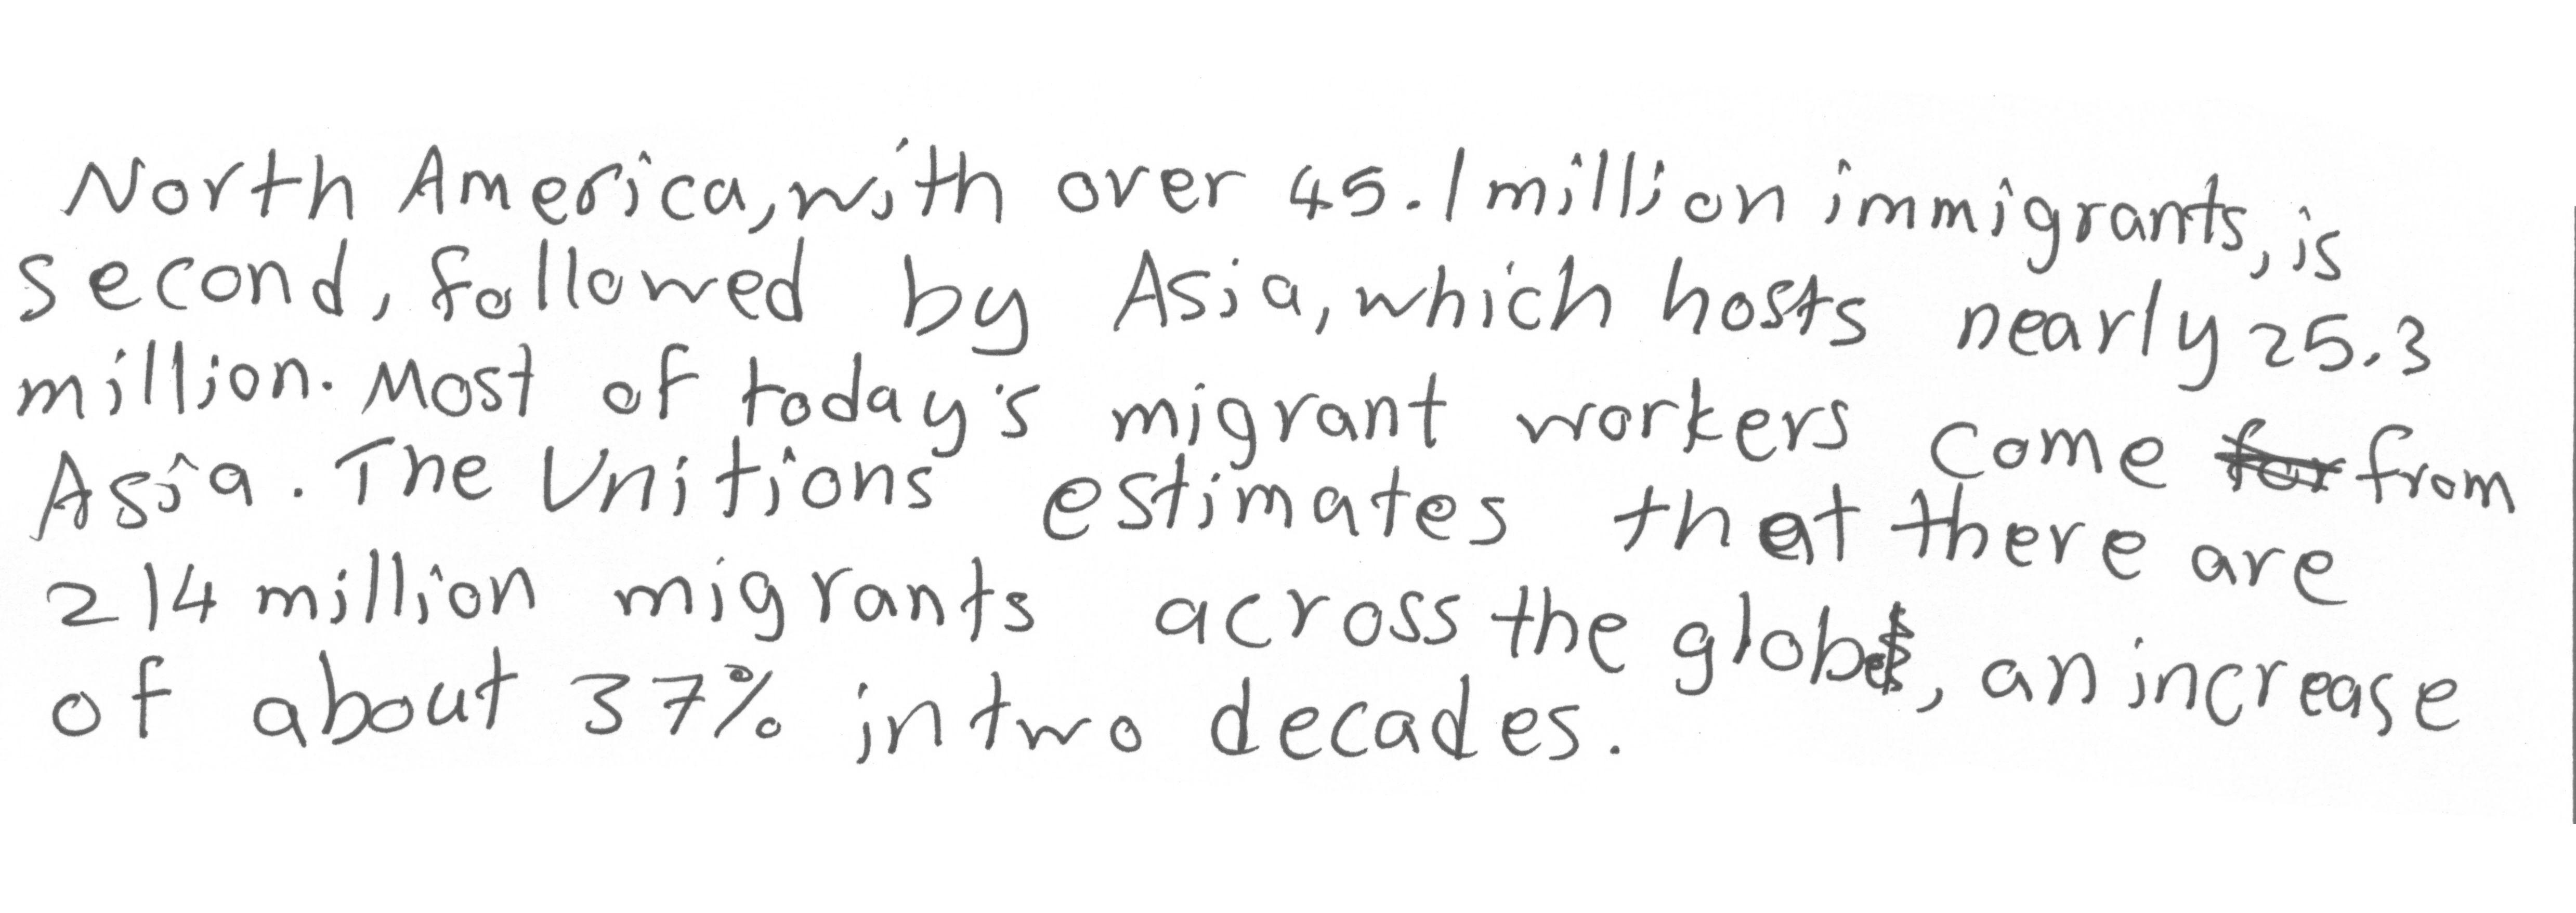 North America, with over 45.1 million immigrants, is
second, followed by Asia, which hosts nearly 25.3
million. Most of today's migrant workers come from
Asia. The Unitions estimates that there are
214 million migrants across the globe, an increase
of about 37% in two decades.